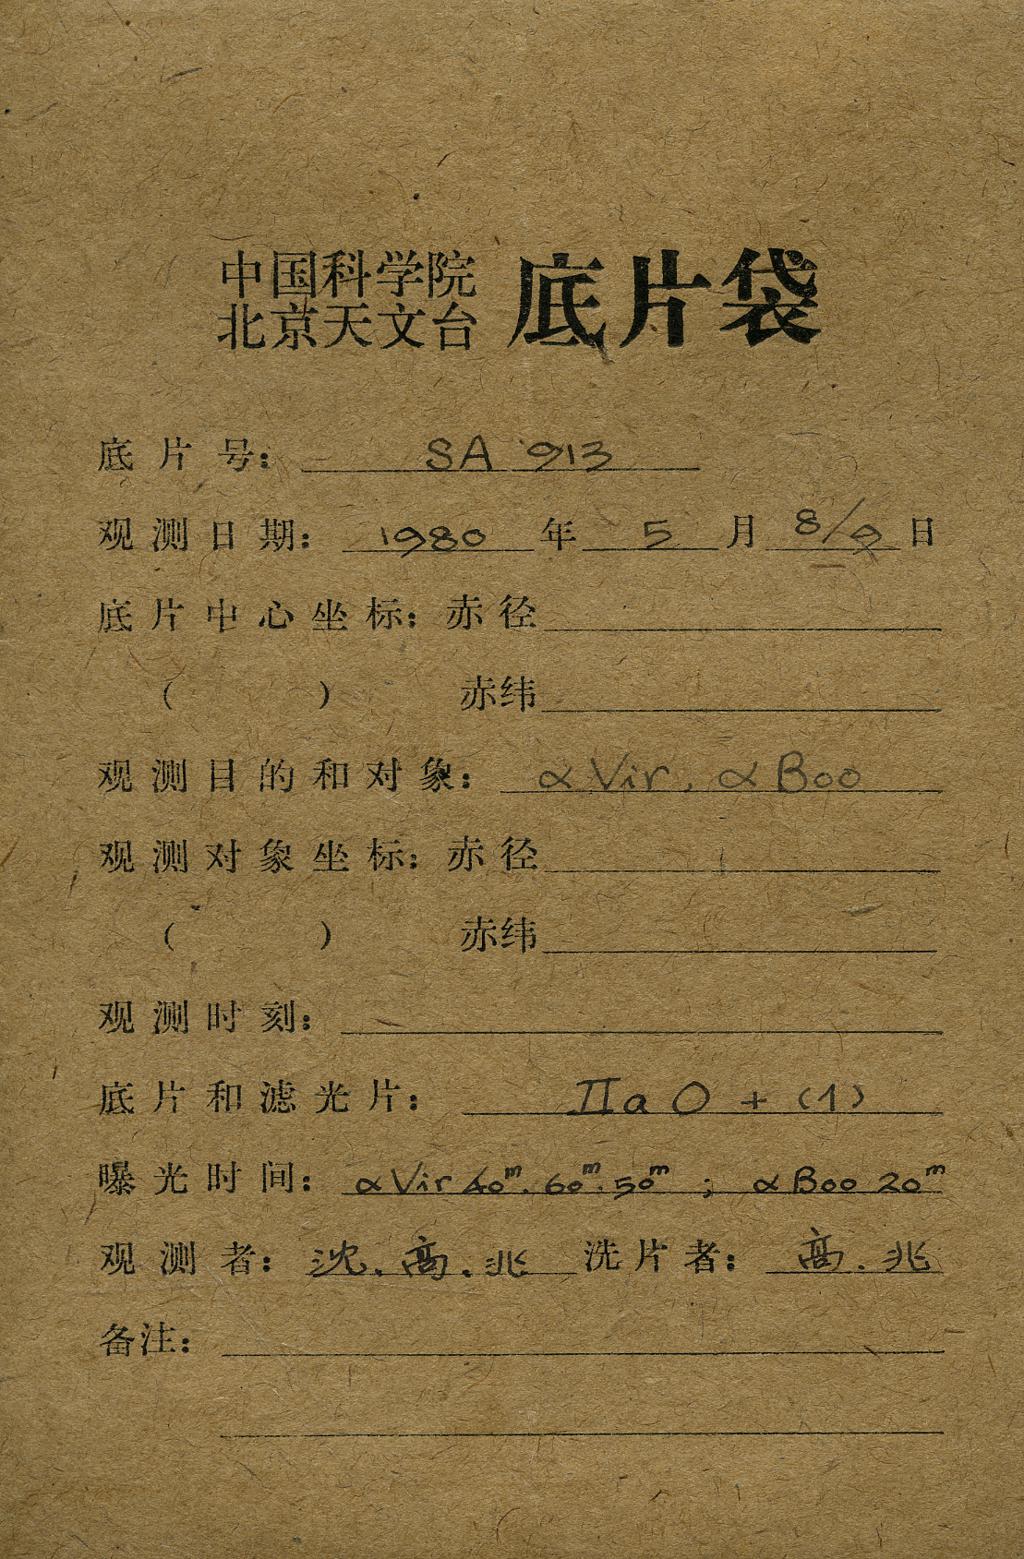 中国科学院
北京天文台 底片袋
底片号： SA 913
观测日期： 1980 年 5 月 8/9 日
底片中心坐标：赤径
（ ） 赤纬
观测目的和对象： α Vir, α Boo
观测对象坐标：赤径
（ ） 赤纬
观测时刻：
底片和滤光片： IIa O + (1)
曝光时间： α Vir 40ᵐ. 60ᵐ. 50ᵐ ; α Boo 20ᵐ
观测者： 沈. 高. 兆 洗片者： 高. 兆
备注：